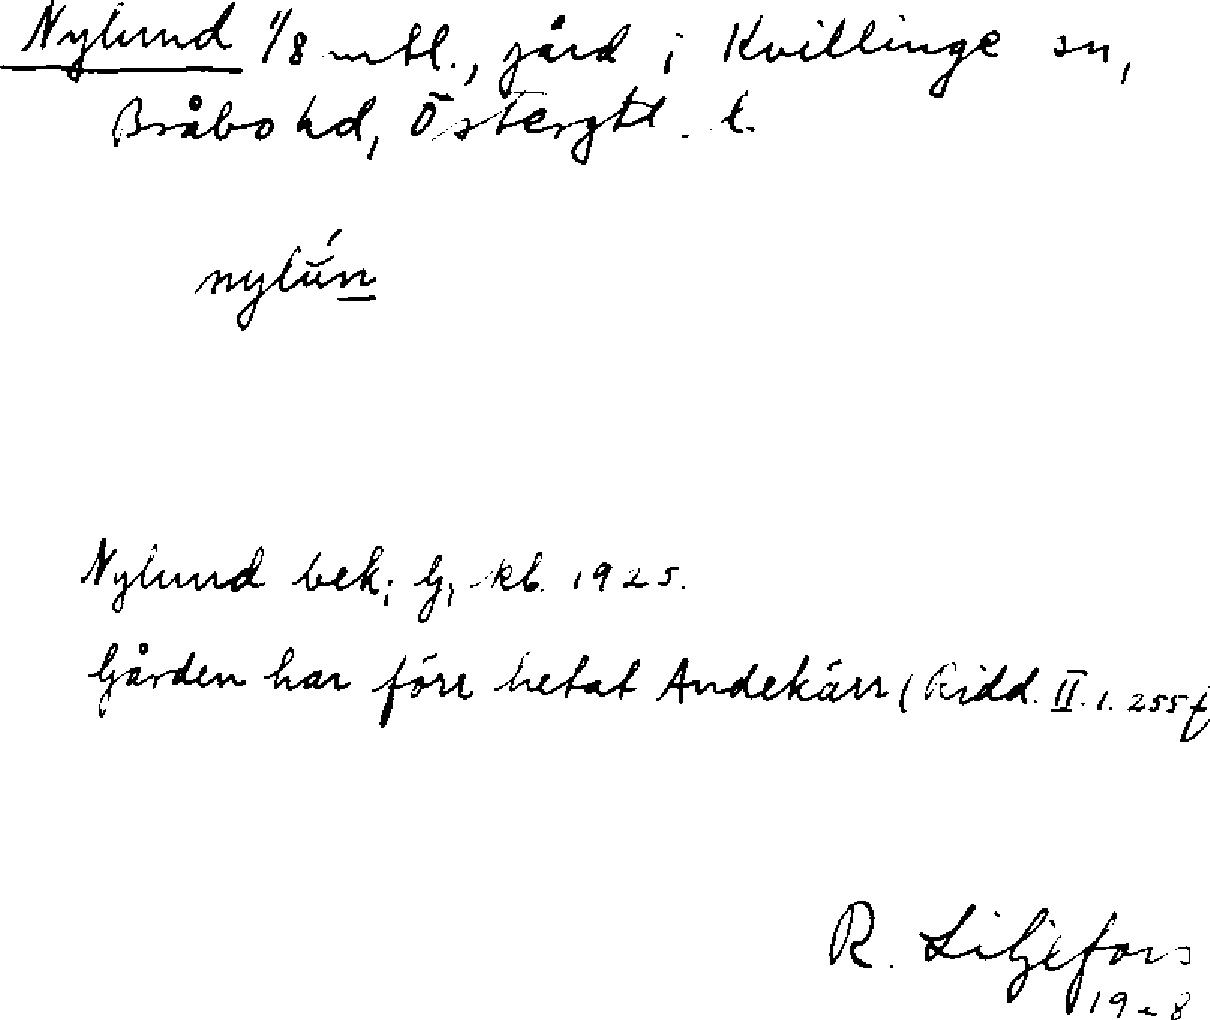 Nylund 1/8 mtl., gård i Kvillinge sn,
Bråbo hd, Östergtl. l.
nylŭ́n
Nylund bek; Gj, kb. 1925.
Gården har förr hetat Andekärr (Ridd. II. 1. 255 f
R. Liljefors